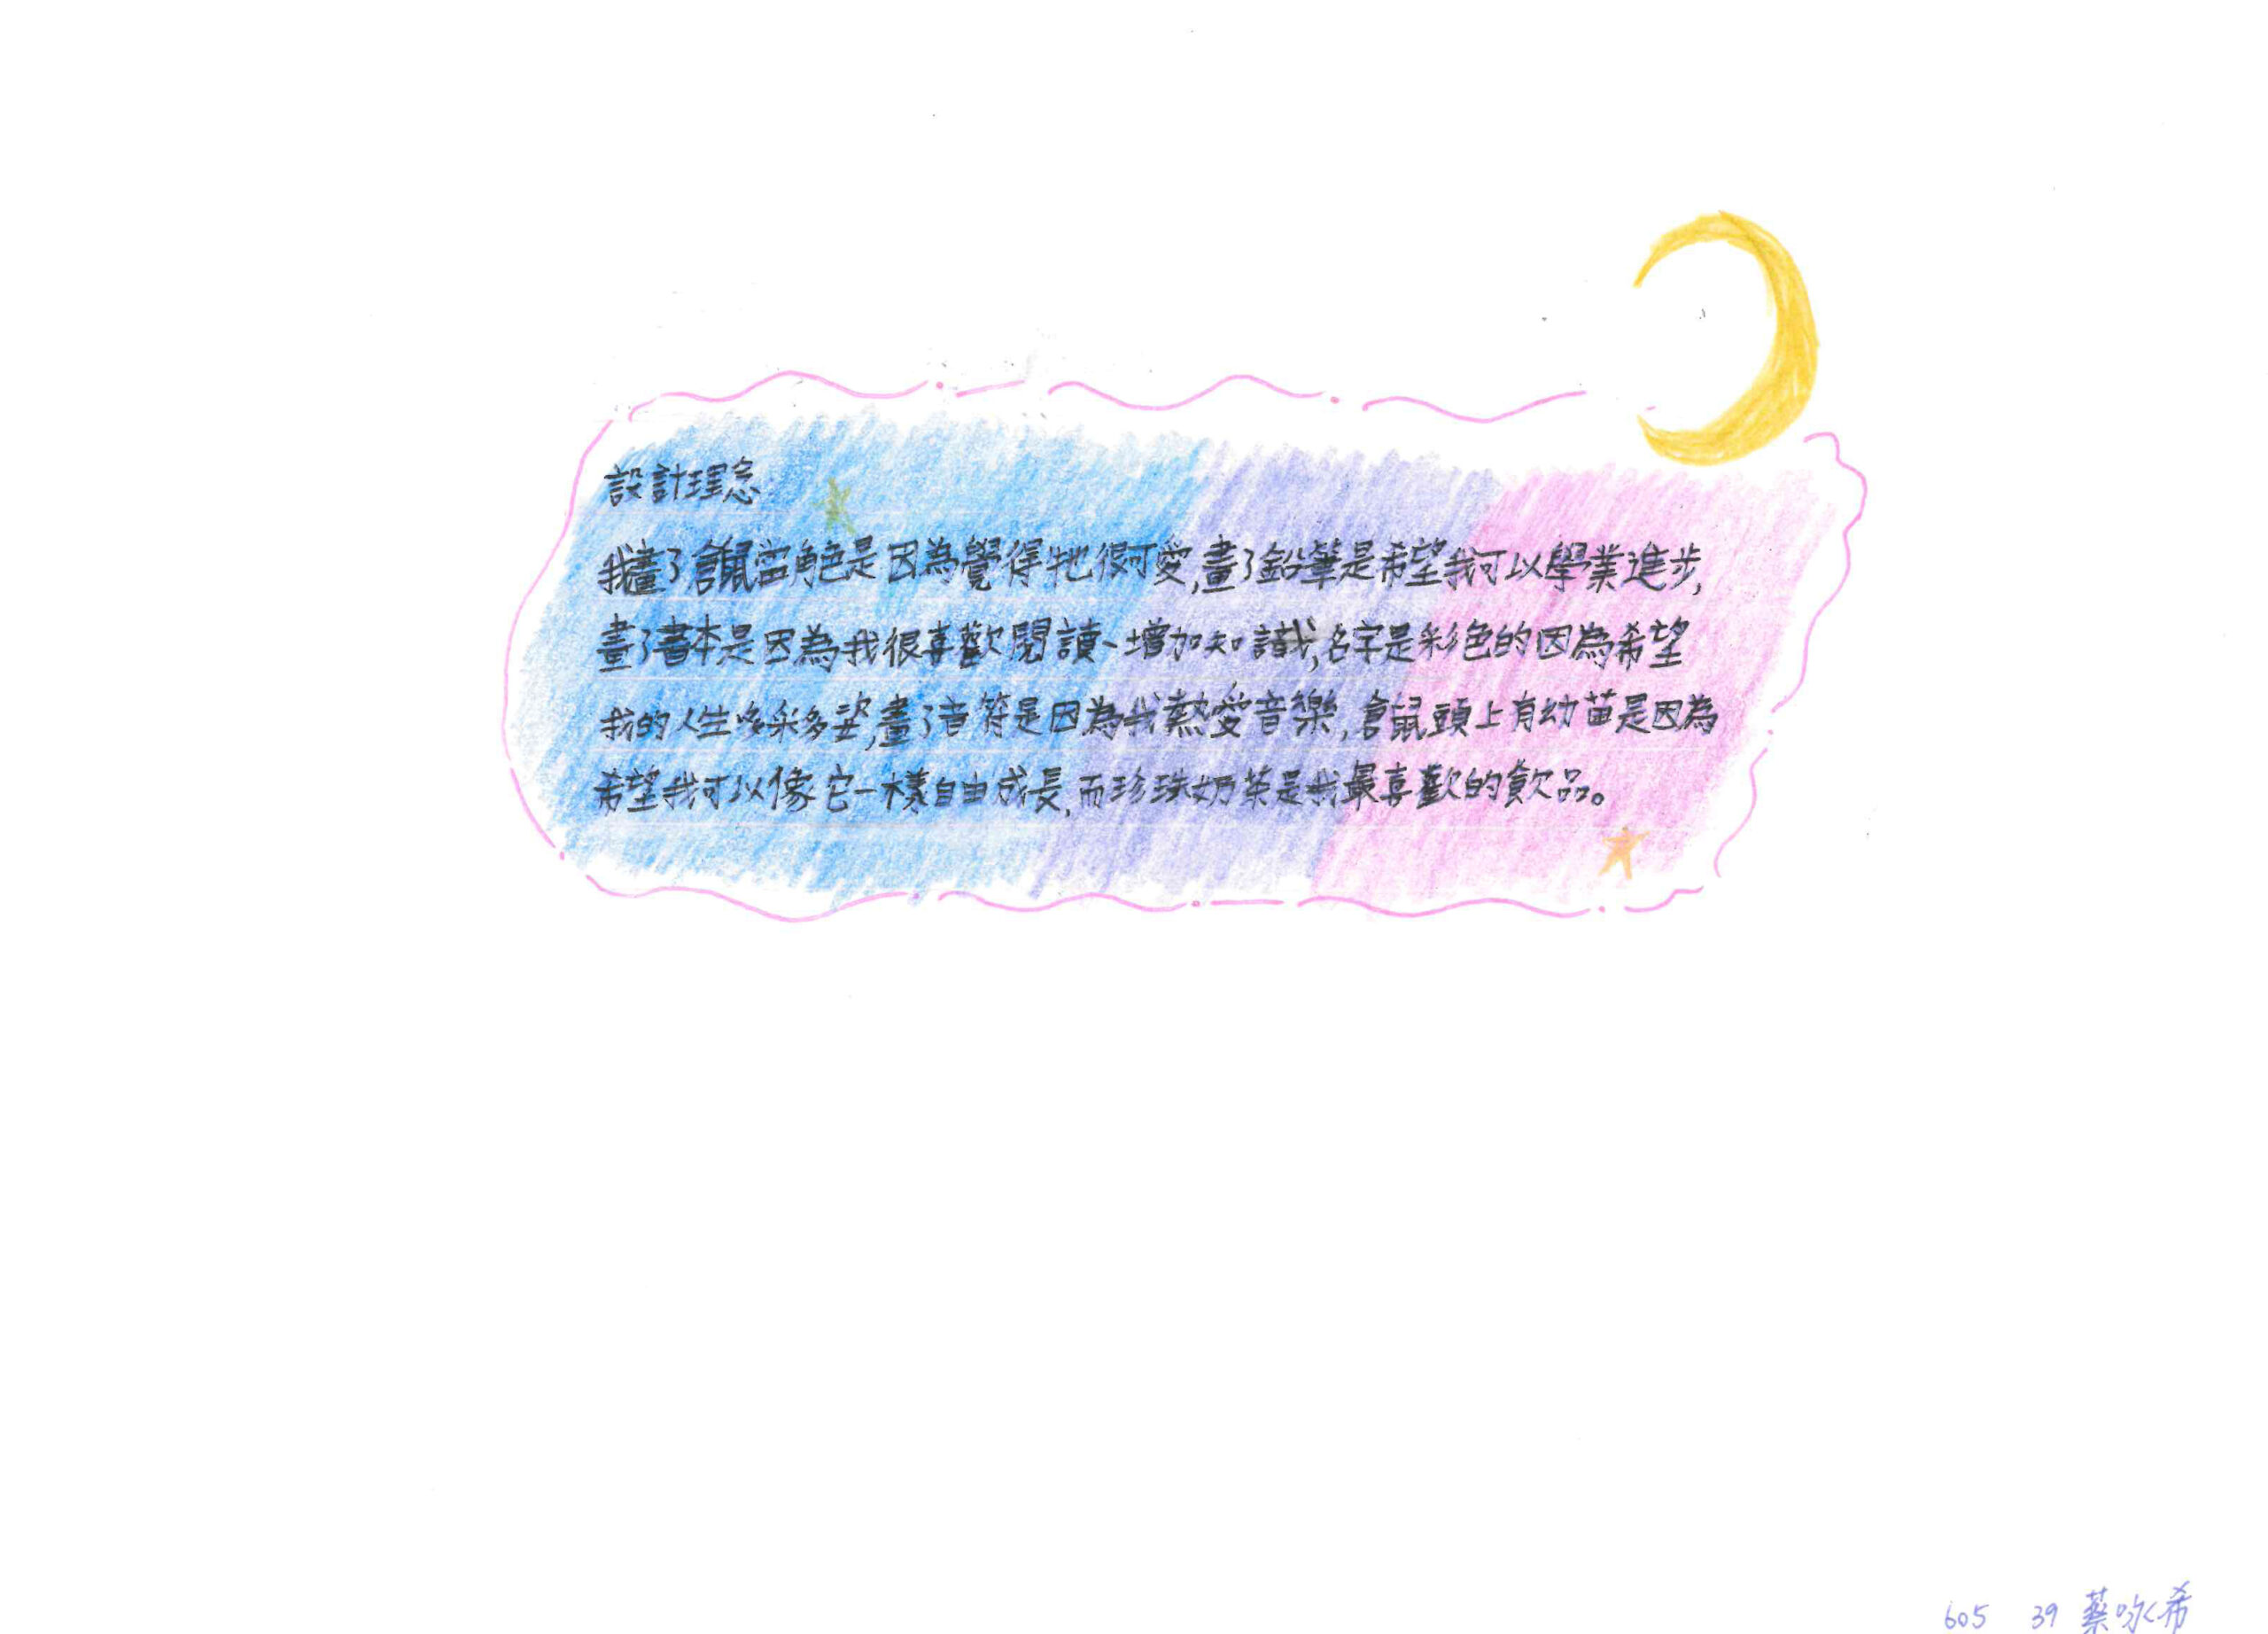 設計理念
我畫了倉鼠當角色是因為覺得牠很可愛,畫了鉛筆是希望我可以學業進步,
畫了書本是因為我很喜歡閱讀、增加知識,名字是彩色的因為希望
我的人生多采多姿,畫了音符是因為我熱愛音樂,倉鼠頭上有幼苗是因為
希望我可以像它一樣自由成長,而珍珠奶茶是我最喜歡的飲品。
605 39 蔡咏希